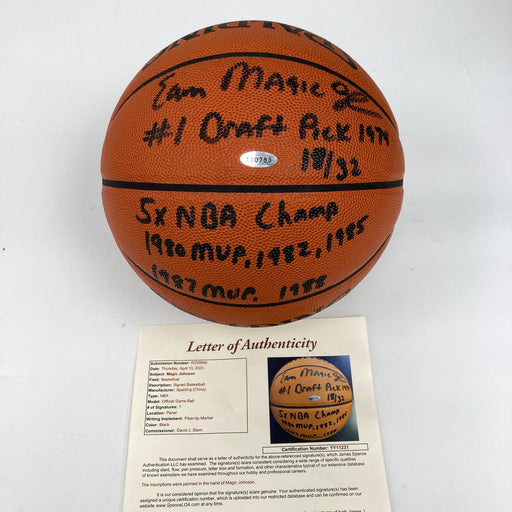 Earvin MAGIC
#1 Draft Pick 1979
18/32
100783
5x NBA Champ
1980 MVP, 1982, 1985
1987 MVP. 1988
Letter of Authenticity
Date: Thursday, April 13, 2023
Subject: Magic Johnson
Field: Basketball
Description: Signed Basketball
Manufacturer: Spalding (China)
Type: NBA
Model: Official Game Ball
# of Signatures: 1
Position: Panel
Writing Implement: Fiber-tip Marker
Color: Black
Commissioner: David J. Stern
Certification Number: YY11231
This document shall serve as a letter of authenticity for the above-referenced signature(s), which James Spence
Authentication LLC has examined. The signature(s) is/are consistent considering a wide range of specific qualities
including slant, flow, pen pressure, letter size and formation, and other characteristics typical of our extensive database
of known exemplars we have examined throughout our hobby and professional careers.
The inscriptions were penned in the hand of Magic Johnson.
It is our considered opinion that the signature(s) is/are genuine. Your authenticated signature(s) has been
assigned a unique certification number, which is uploaded into our restricted database and can be confirmed on our
website www.SpenceLOA.com at any time.